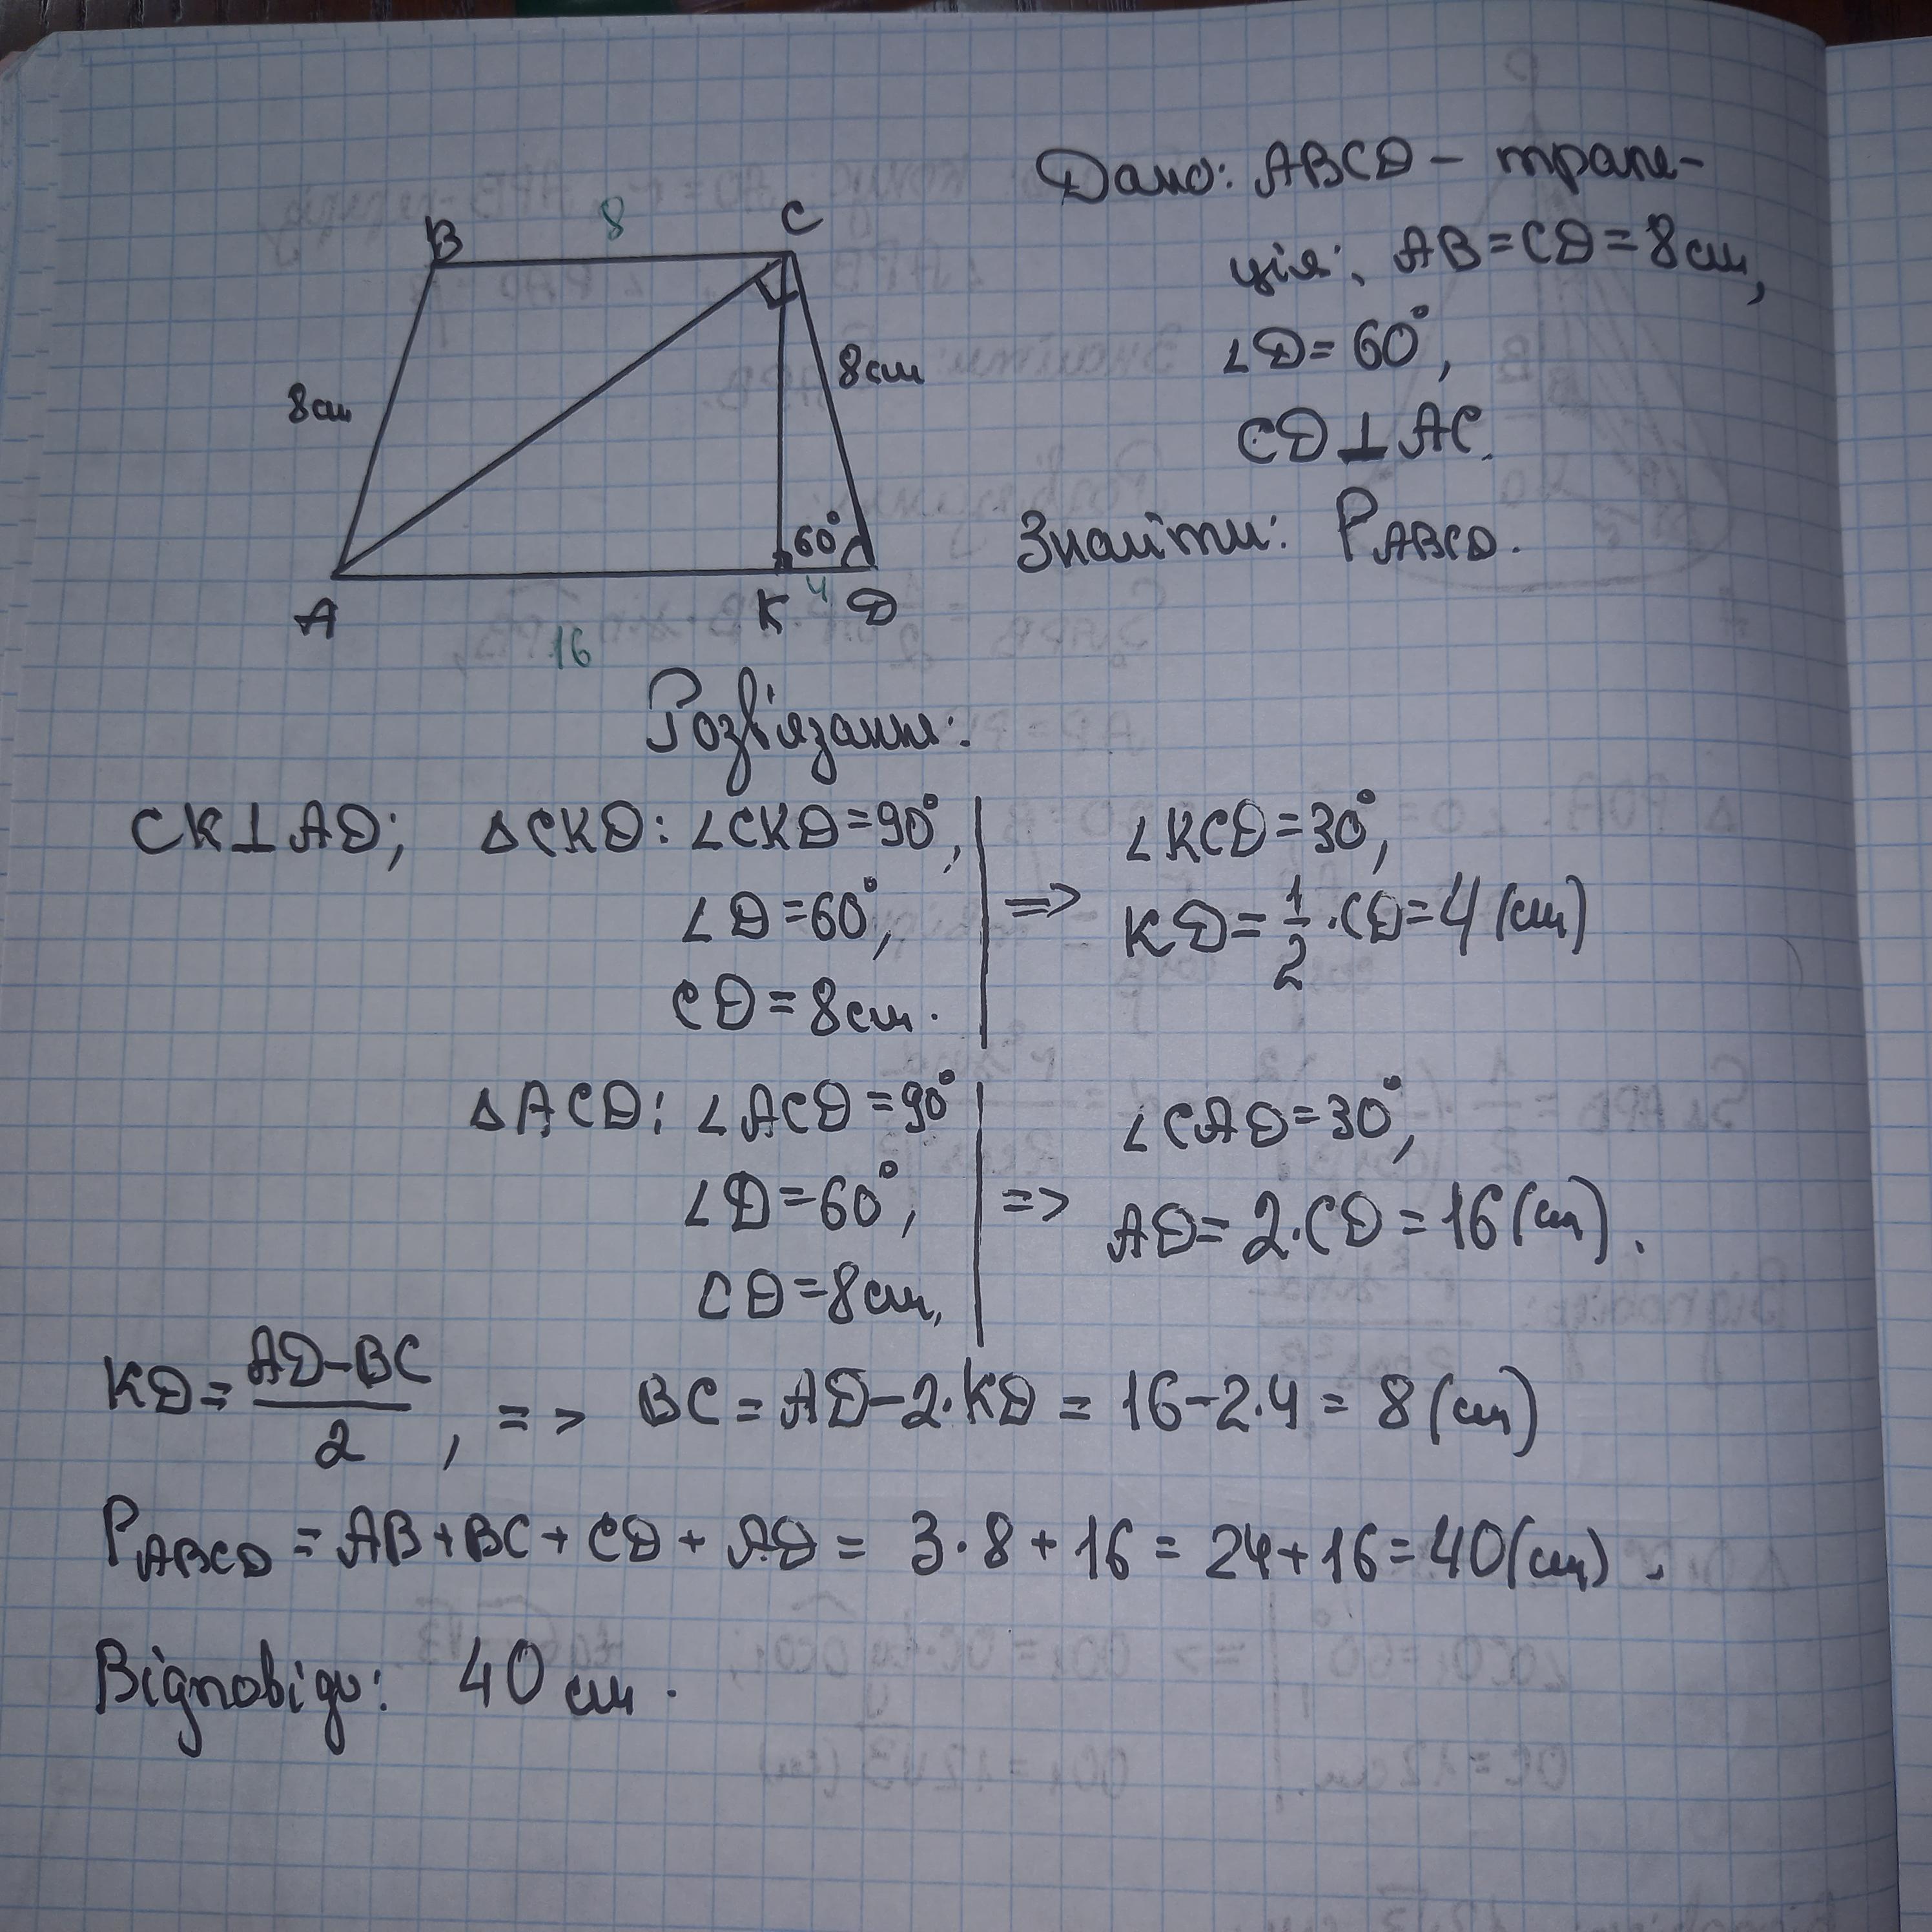 B 8 C
8см
8см
60°
A K 4 D
16
Дано: ABCD – трапе-
ція; AB = CD = 8см,
∠D = 60°,
CD⊥AC.
Знайти: P ABCD.
Розв'язання:
CK⊥AD; △CKD: ∠CKD = 90°,
∠D = 60°,
CD = 8см.
=> ∠KCD = 30°,
KD = 1/2 · CD = 4 (см)
△ACD: ∠ACD = 90°
∠D = 60°,
CD = 8см,
=> ∠CAD = 30°,
AD = 2·CD = 16 (см).
KD = AD–BC/2, => BC = AD – 2·KD = 16 – 2·4 = 8 (см)
P ABCD = AB + BC + CD + AD = 3·8 + 16 = 24 + 16 = 40 (см).
Відповідь: 40 см.